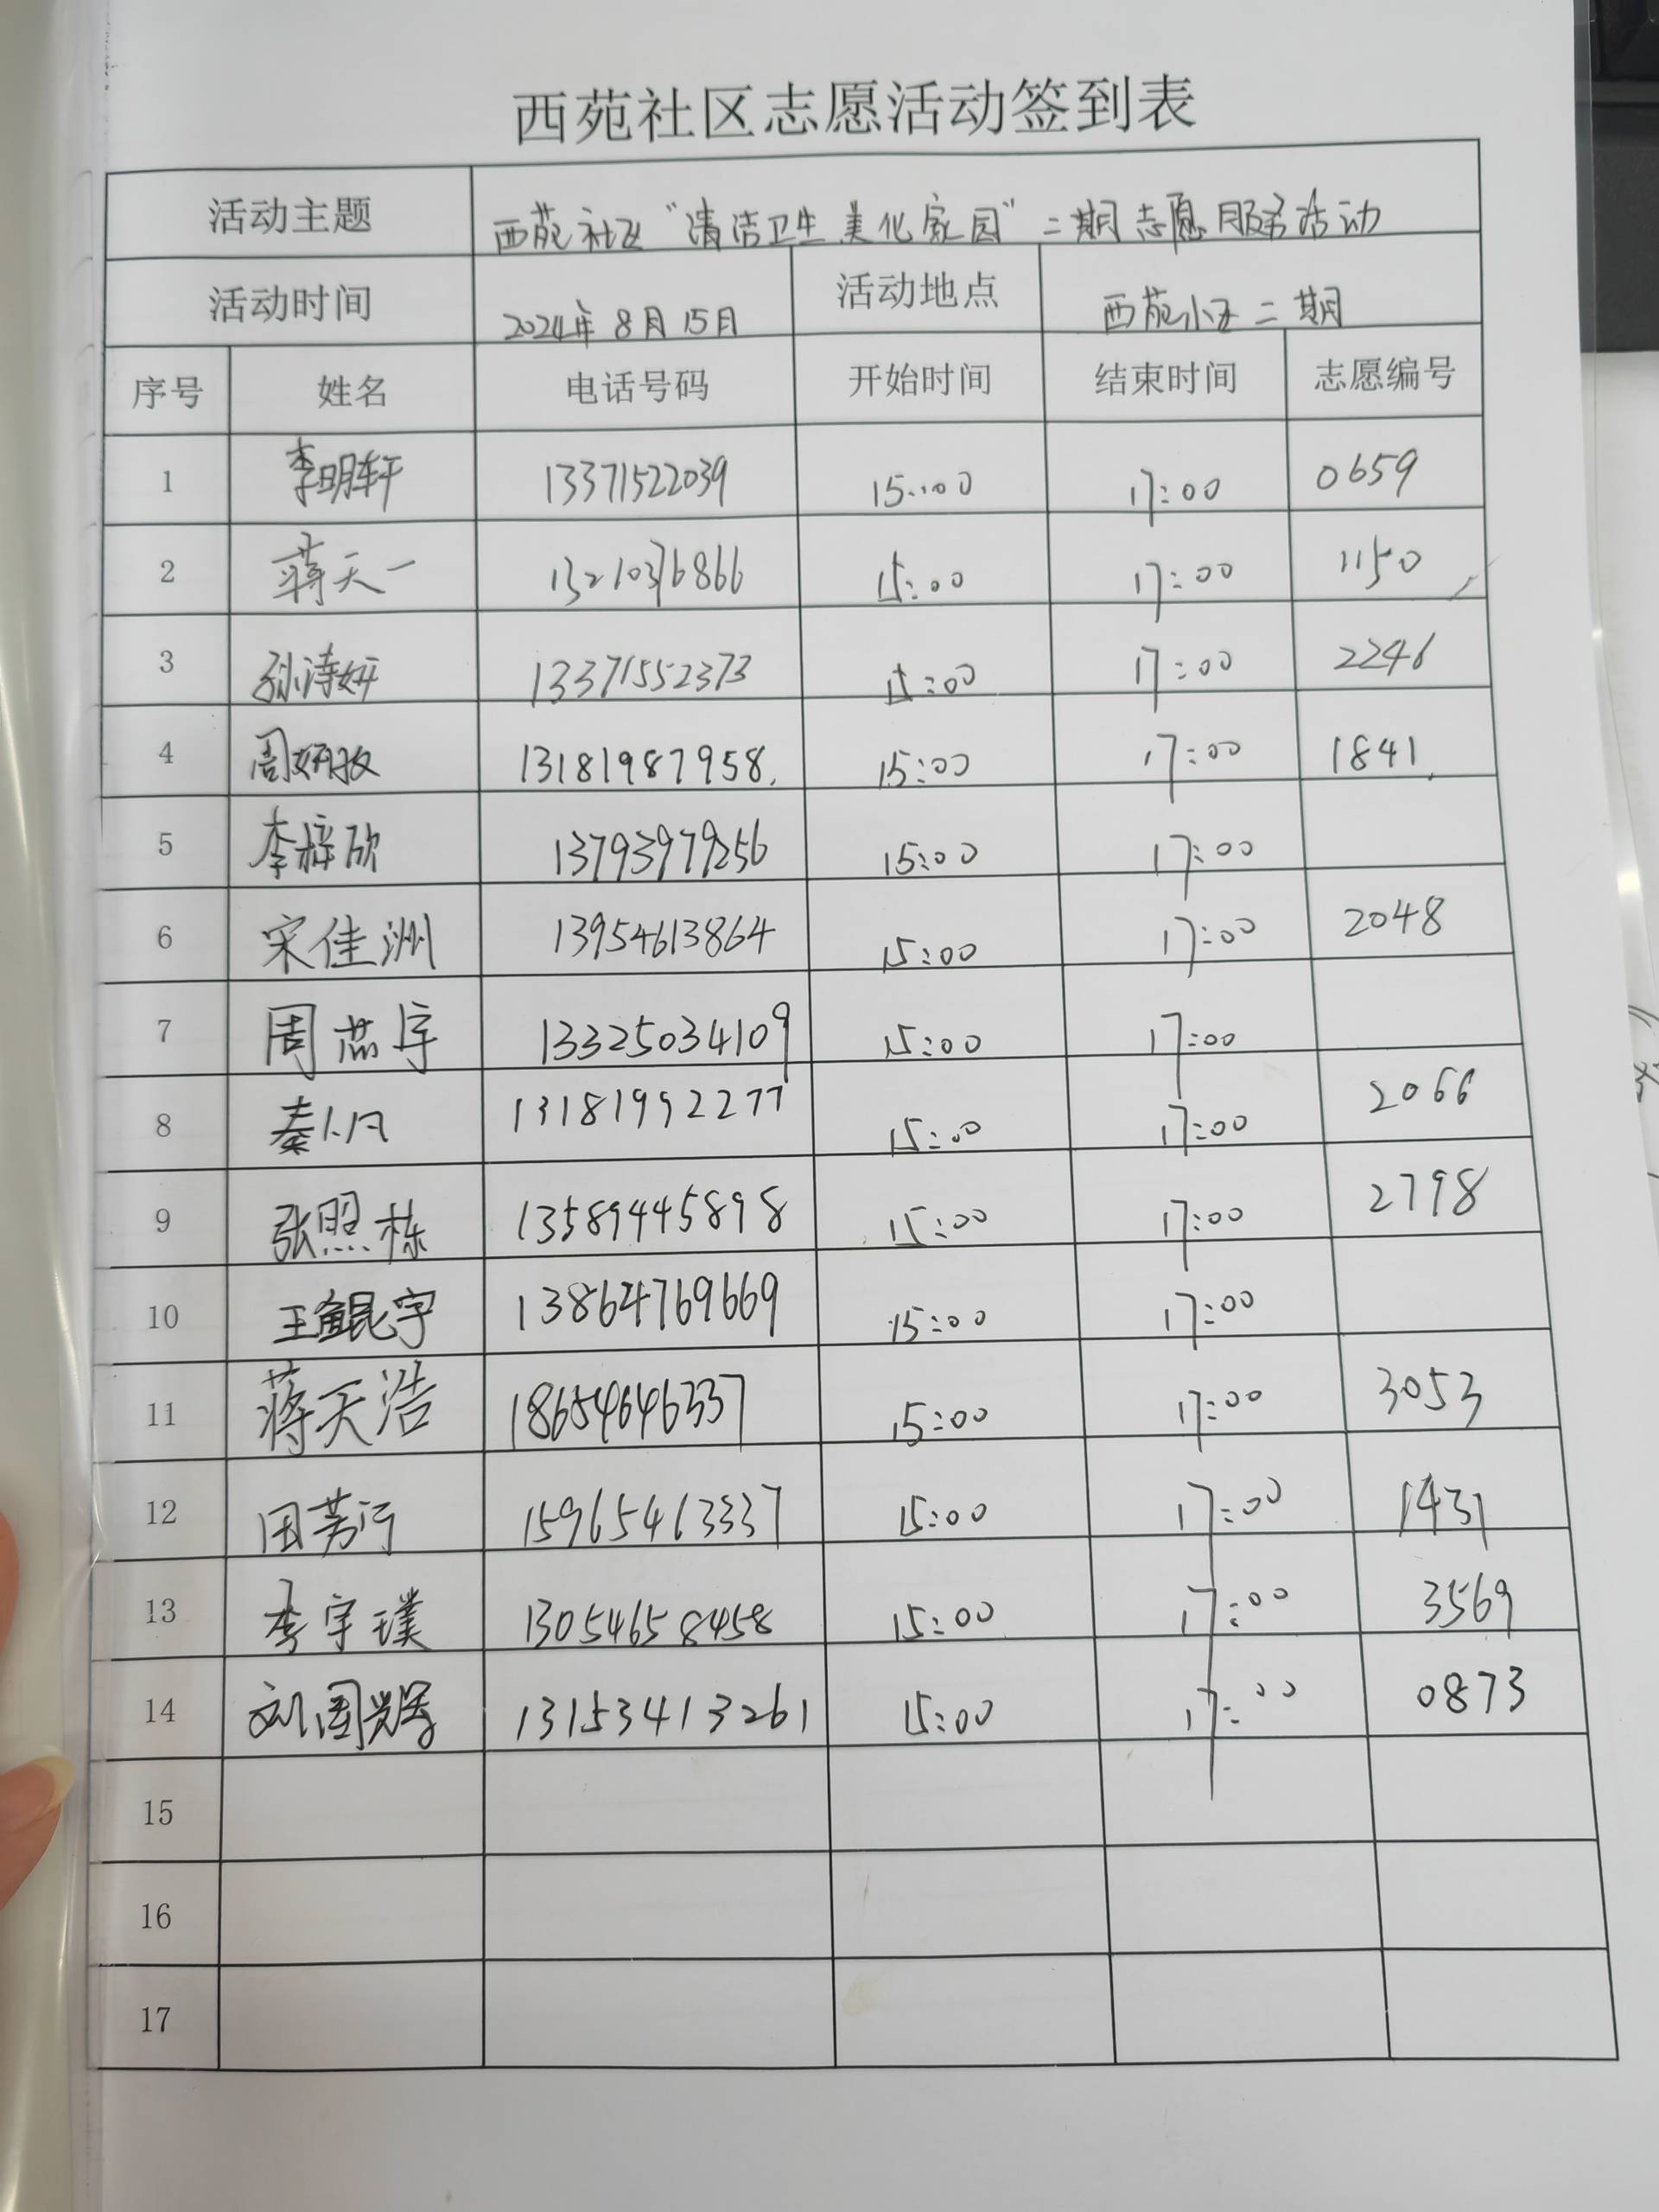 西苑社区志愿活动签到表
活动主题 西苑社区“清洁卫生 美化家园”二期志愿服务活动
活动时间 2024年8月15日 活动地点 西苑小区二期
序号 姓名 电话号码 开始时间 结束时间 志愿编号
1 李明轩 13371522039 15:00 17:00 0659
2 蒋天一 13210376866 15:00 17:00 1150
3 孙诗妍 13371552373 15:00 17:00 2246
4 周妍孜 13181987958. 15:00 17:00 1841.
5 李梓欣 13793979256 15:00 17:00
6 宋佳洲 13954613864 15:00 17:00 2048
7 周芯宇 13325034109 15:00 17:00
8 秦 13181992277 15:00 17:00 2066
9 张照栋 13589445898 15:00 17:00 2798
10 王鲲宇 13864769669 15:00 17:00
11 蒋天浩 18654646337 15:00 17:00 3053
12 田芳 15965463337 15:00 17:00 1431
13 李宇璞 13054658458 15:00 17:00 3569
14 刘国 13153413261 15:00 17:00 0873
15
16
17